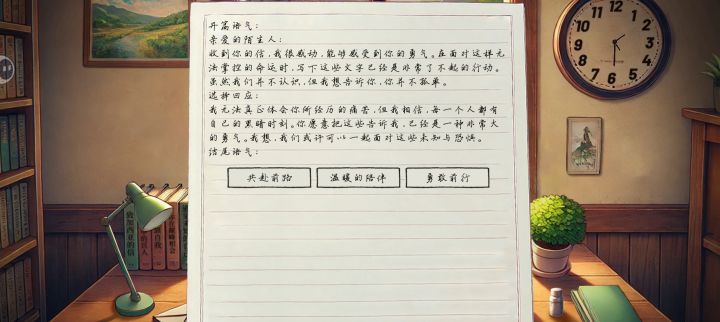 开篇语气:
亲爱的陌生人:
收到你的信,我很感动,能够感受到你的勇气。在面对这样无
法掌控的命运时,写下这些文字已经是非常了不起的行动。
虽然我们并不认识,但我想告诉你,你并不孤单。
选择回应:
我无法真正体会你所经历的痛苦,但我相信,每一个人都有
自己的黑暗时刻。你愿意把这些告诉我,已经是一种非常大
的勇气。我想,我们或许可以一起面对这些未知与恐惧。
结尾语气:
共赴前路
温暖的陪伴
勇敢前行
12
1
2
3
4
5
6
7
8
9
10
11